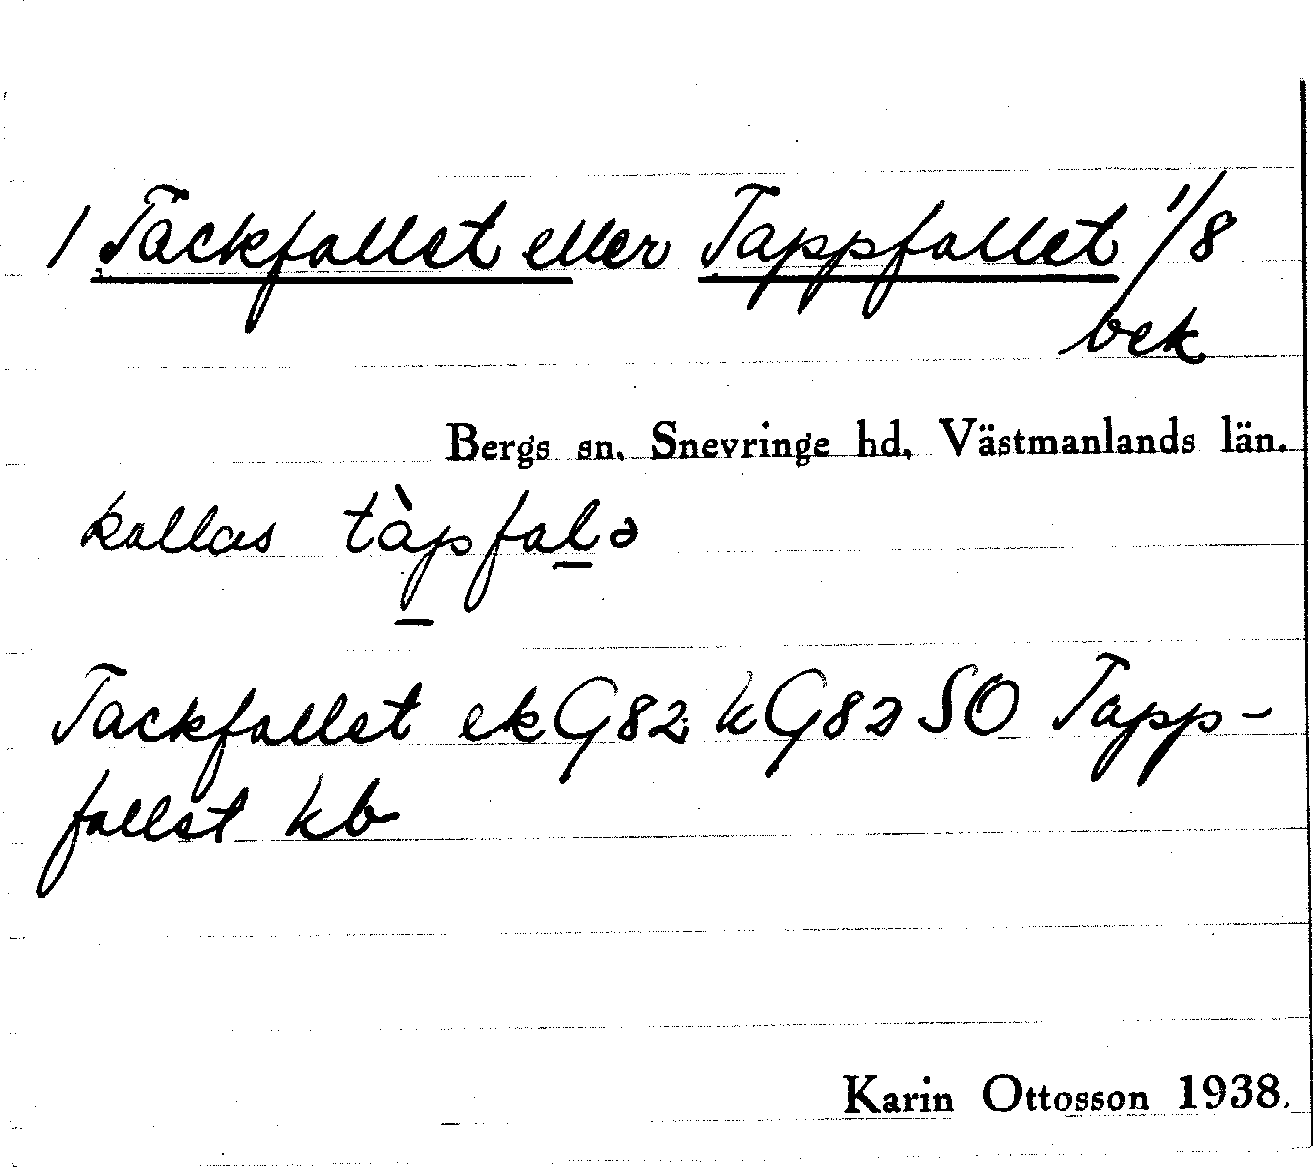 1 Tackfallet eller Tappfallet 1/8
bek
Bergs sn, Snevringe hd, Västmanlands län.
kallas tàpfalə
Tackfallet ek G82 k G82 SO Tapp-
fallet kb
Karin Ottosson 1938.